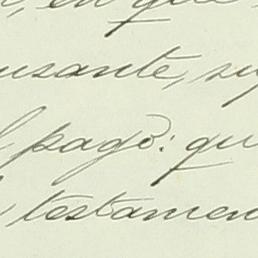 en que
usante, su
l pago: qu
testamen